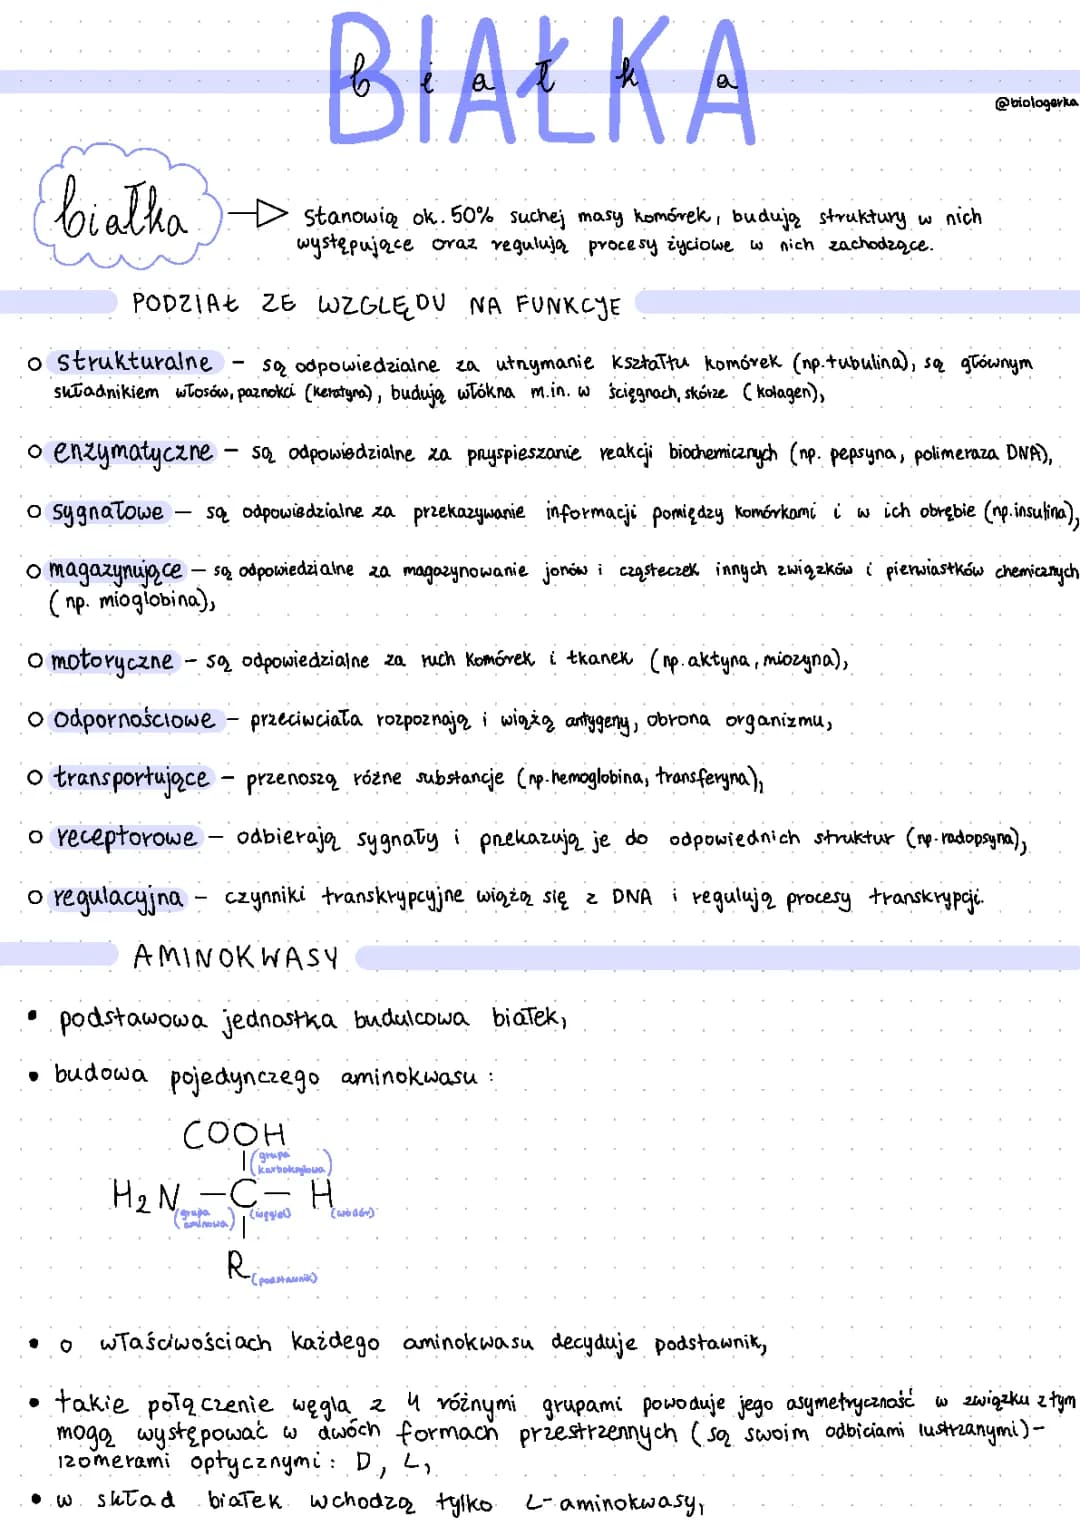 BIAŁKA
białka
@biologerka
białka
stanowią ok. 50% suchej masy komórek, budują struktury w nich
występujące oraz regulują procesy życiowe w nich zachodzące.
PODZIAŁ ZE WZGLĘDU NA FUNKCJE
strukturalne – są odpowiedzialne za utrzymanie kształtu komórek (np. tubulina), są głównym
składnikiem włosów, paznokci (keratyna), budują włókna m.in. w ścięgnach, skórze (kolagen),
enzymatyczne – są odpowiedzialne za przyspieszanie reakcji biochemicznych (np. pepsyna, polimeraza DNA),
sygnałowe – są odpowiedzialne za przekazywanie informacji pomiędzy komórkami i w ich obrębie (np. insulina),
magazynujące – są odpowiedzialne za magazynowanie jonów i cząsteczek innych związków i pierwiastków chemicznych
(np. mioglobina),
motoryczne – są odpowiedzialne za ruch komórek i tkanek (np. aktyna, miozyna),
odpornościowe – przeciwciała rozpoznają i wiążą antygeny, obrona organizmu,
transportujące – przenoszą różne substancje (np. hemoglobina, transferyna),
receptorowe – odbierają sygnały i przekazują je do odpowiednich struktur (np. radopsyna),
regulacyjna – czynniki transkrypcyjne wiążą się z DNA i regulują procesy transkrypcji.
AMINOKWASY
• podstawowa jednostka budulcowa białek,
• budowa pojedynczego aminokwasu :
COOH
(grupa
karboksylowa)
H₂N – C – H
(grupa
aminowa) (węgiel) (wodór)
R (podstawnik)
• o właściwościach każdego aminokwasu decyduje podstawnik,
• takie połączenie węgla z 4 różnymi grupami powoduje jego asymetryczność w związku z tym
mogą występować w dwóch formach przestrzennych (są swoim odbiciami lustrzanymi) -
izomerami optycznymi : D, L,
• w skład białek wchodzą tylko L-aminokwasy,